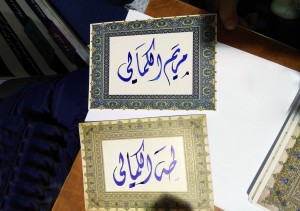 مريم الكمالي
طه الكمالي